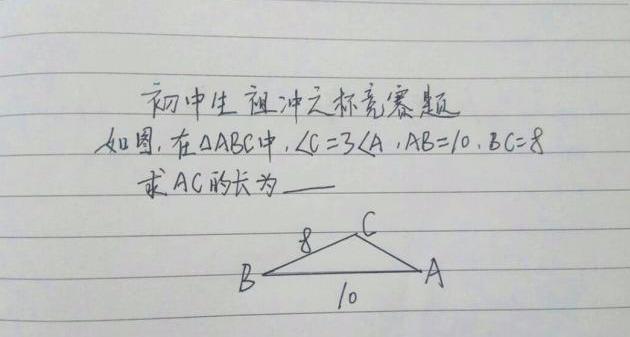 初中生祖冲之杯竞赛题
如图,在△ABC中,∠C=3∠A,AB=10,BC=8
求AC的长为___
C
8
B
A
10